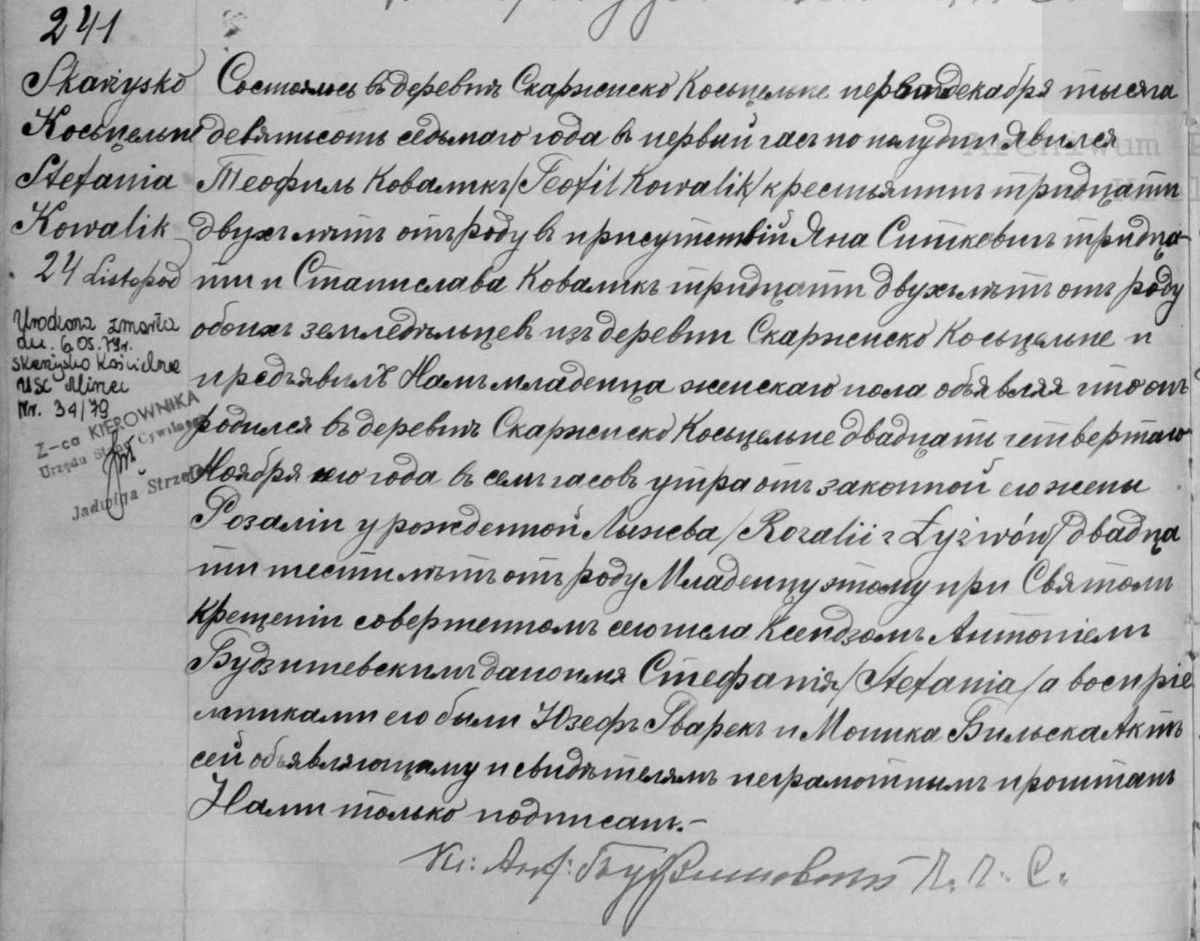 241
Skarżysko
Косьцельне
Stefania
Kowalik
24 Listopad
Urodzona zmarła
dn. 6.05.79r.
Skarżysko Kościelne
USC Mirzec
Nr. 34/79
Z-ca KIEROWNIKA
Urzędu Stanu Cywilnego
Jadwiga
Archiwum
Состоялось въ деревнѣ Скаржиско Косьцельне перваго декабря тысяча
девятьсотъ седьмаго года в первый часъ по полудни явился
Теофиль Коваликъ /Teofil Kowalik/ крестьянинъ тридцати
двухъ лѣтъ отъ роду в присутствій Яна Ситкевичъ тридца-
ти и Станислава Коваликъ тридцати двухъ лѣтъ отъ роду
обоихъ земледѣльцевъ изъ деревни Скаржиско Косьцельне и
предъявилъ Намъ младенца женскаго пола объявляя что онъ
родился въ деревнѣ Скаржиско Косьцельне двадцать четвертаго
Ноября сего года въ семъ часовъ утра отъ законной его жены
Розаліи урожденной Лыжева /Rozalii z Łyżwów/ двадца
ти шести лѣтъ отъ роду Младенцу этому при Святомъ
крещеніи совершенномъ сего числа Ксендзомъ Антоніемъ
Будзишевскимъ дано имя Стефанія /Stefania/ а воспріе
мниками его были Юзефъ Гварекъ и Моника Бильска Актъ
сей объявляющему и свидѣтелямъ неграмотнымъ прочитанъ
Нами только подписанъ.-
Кс: Ант: Будзишевскій П. П. С.